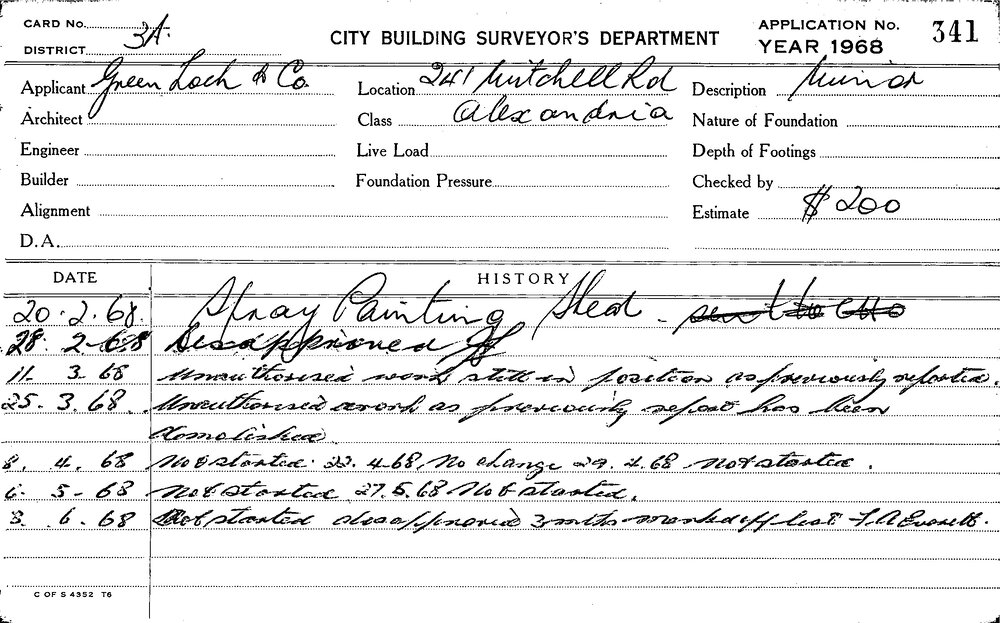 CARD No.
DISTRICT 3A.
CITY BUILDING SURVEYOR'S DEPARTMENT
APPLICATION No. 341
YEAR 1968
Applicant Green Loch & Co.
Location 241 Mitchell Rd
Description Minor
Architect
Class Alexandria
Nature of Foundation
Engineer
Live Load
Depth of Footings
Builder
Foundation Pressure
Checked by
Alignment
Estimate $200
D.A.
DATE HISTORY
20.2.68. Spray Painting Shed -
28. 2-68 Disapproved
11. 3. 68 Unauthorised work still in position as previously reported.
25. 3. 68. Unauthorised work as previously report has been
demolished
8. 4. 68 Not started. 22. 4.68, No change 29. 4. 68 not started.
6. 5 - 68 Not started 27.5.68 Not started.
3. 6. 68 Not started disapproved 3 mths marked off list
C OF S 4352 T6